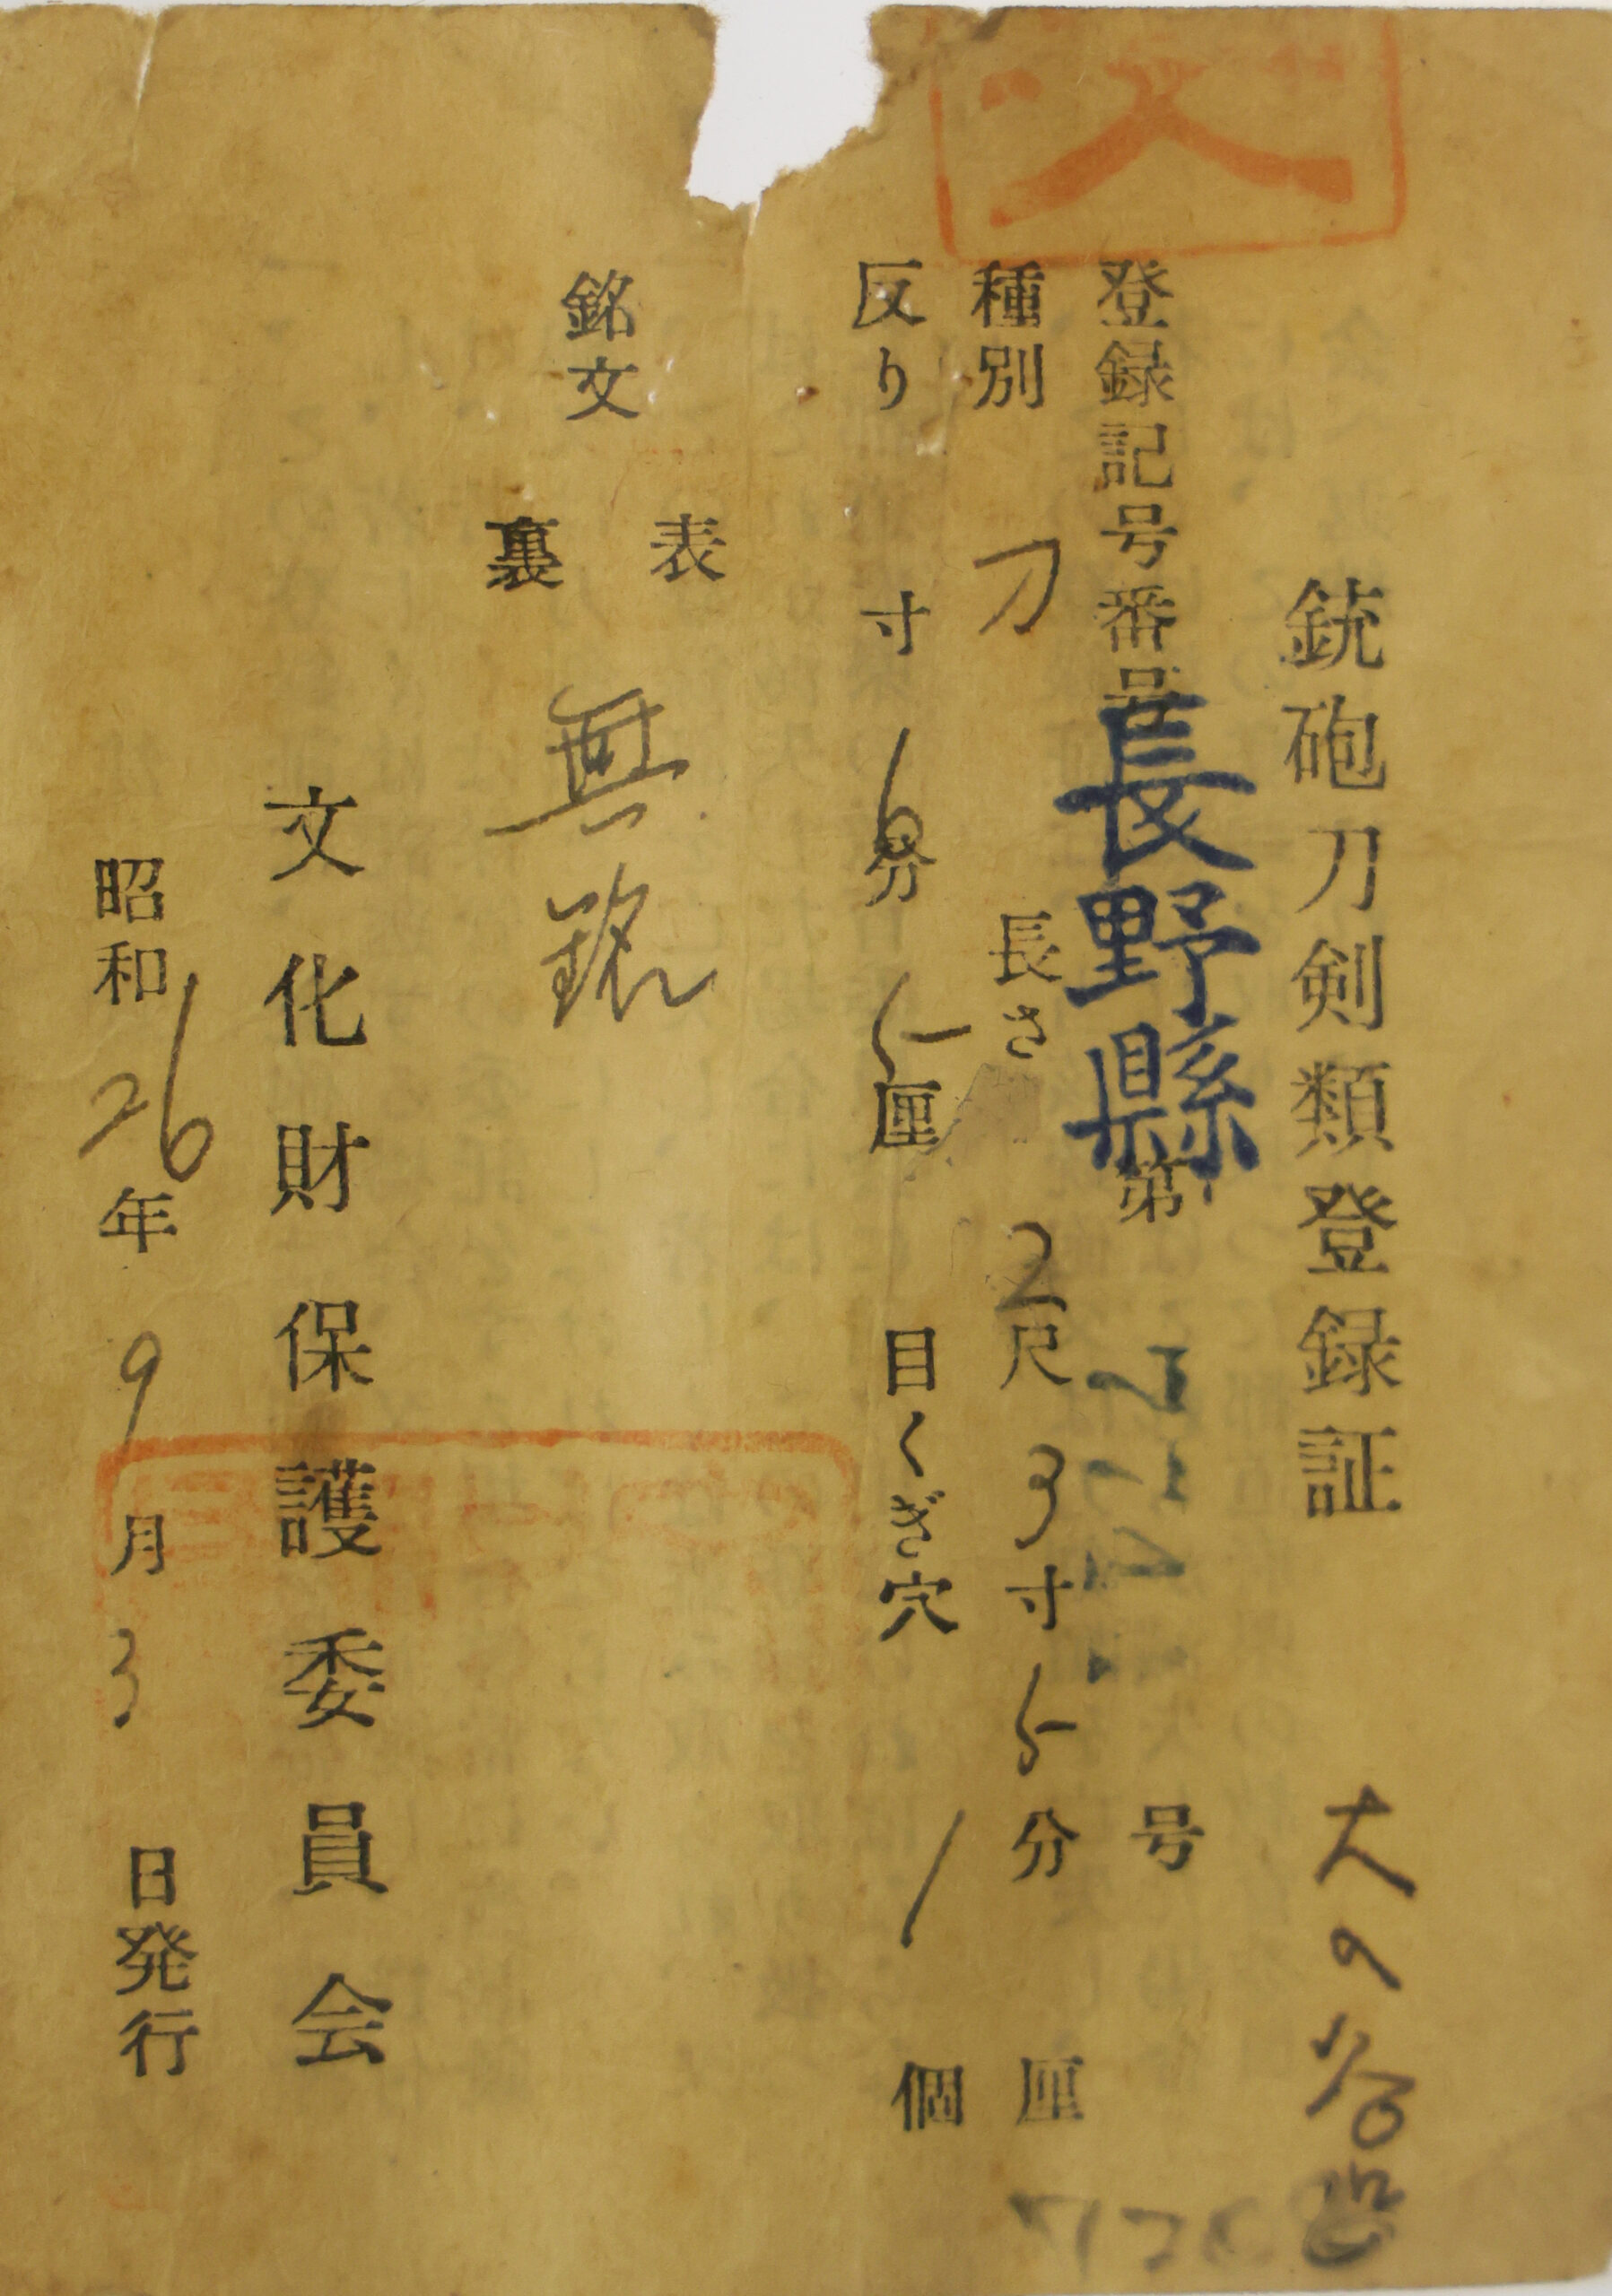 銃砲刀剣類登録証
登録記号番号 長野縣 第 号
種別 刀 長さ 2尺 3寸 5分 厘
反り 寸 6分 5厘 目くぎ穴 1 個
銘文
表
無銘
裏
文化財保護委員会
昭和26年9月3日発行